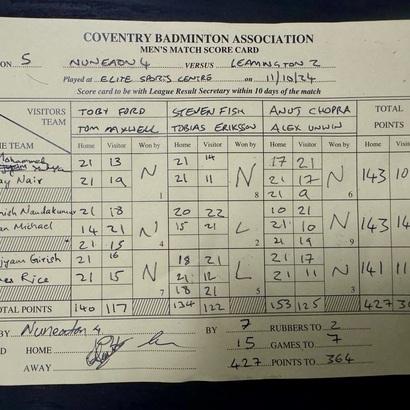 COVENTRY BADMINTON ASSOCIATION
MEN'S MATCH SCORE CARD
ON 5 NUNEATON 4 VERSUS LEAMINGTON 2
Played at ELITE SPORTS CENTRE on 11/10/24
Score card to be with League Result Secretary within 10 days of the match
VISITORS TOBY FORD STEVEN FISH ANUJ CHOPRA TOTAL
TEAM TOM MAXWELL TOBIAS ERIKSON ALEX UNWIN POINTS
E TEAM Home Visitor Won by Home Visitor Won by Home Visitor Won by Home
Mohammed 21 13 N 21 14 N 17 21 N 143 10
ay Nair 21 19 21 11 21 17
1 8 21 9 6
ish Nandakumar 21 18 N 20 22 L 10 21 N 143 14
an Michael 14 21 15 21 21 10
21 15 4 2 21 19 9
jyam Girish 21 16 N 18 21 L 21 17 N 141 11
es Rice 21 15 21 12 21 11
7 18 21 5 3
TAL POINTS 140 117 134 122 153 125 427 36
BY Nuneaton 4 BY 7 RUBBERS TO 2
D HOME 15 GAMES TO 7
AWAY 427 POINTS TO 364